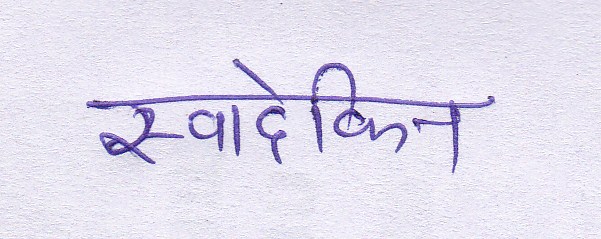 स्वादेकिन